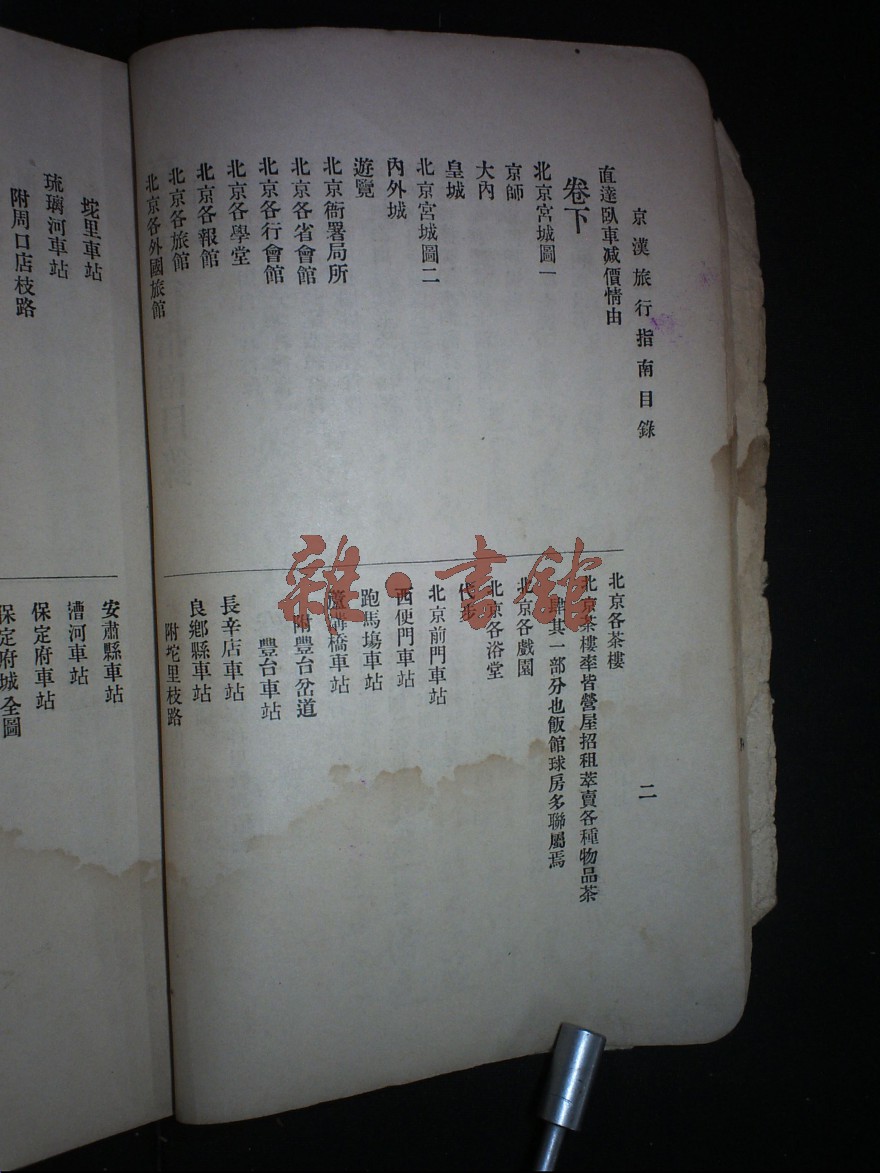 京漢旅行指南目錄
二
直達臥車减價情由
卷下
北京宮城圖一
京師
大內
皇城
北京宮城圖二
內外城
遊覽
北京衙署局所
北京各省會館
北京各行會館
北京各學堂
北京各報館
北京各旅館
北京各外國旅館
北京各茶樓
北京茶樓率皆營屋招租萃賣各種物品茶
肆其一部分也飯館球房多聯屬焉
北京各戲園
北京各浴堂
代步
北京前門車站
西便門車站
跑馬塲車站
蘆溝橋車站
附豐台岔道
豐台車站
長辛店車站
良鄉縣車站
附坨里枝路
坨里車站
琉璃河車站
附周口店枝路
安肅縣車站
漕河車站
保定府車站
保定府城全圖
雜·書館